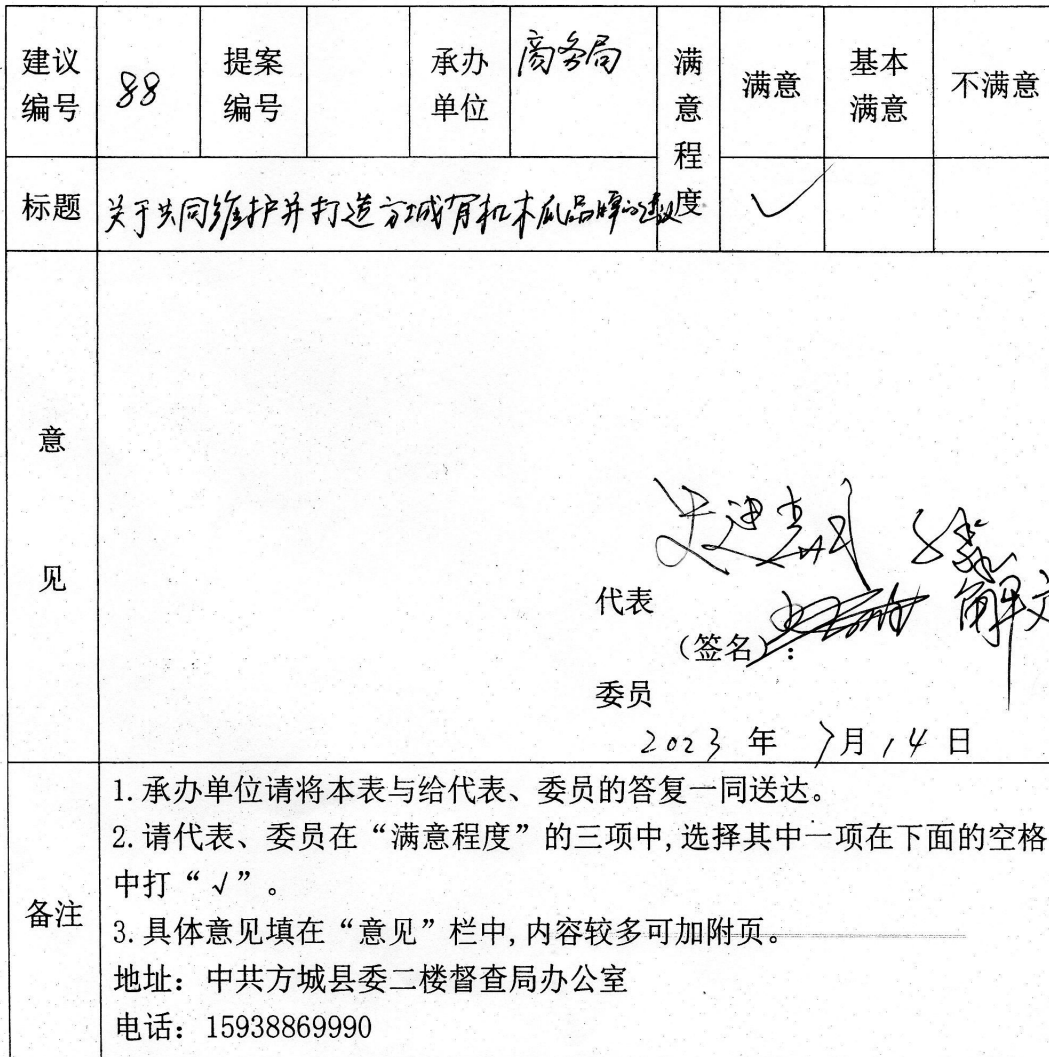 建议编号 88 提案编号 承办单位 商务局 满意程度 满意 基本满意 不满意
标题 关于共同维护并打造方城有机木瓜品牌的建议 ✓
意见
代表
(签名):
委员
2023 年 7月 14 日
备注
1.承办单位请将本表与给代表、委员的答复一同送达。
2.请代表、委员在“满意程度”的三项中,选择其中一项在下面的空格
中打“√”。
3.具体意见填在“意见”栏中,内容较多可加附页。
地址：中共方城县委二楼督查局办公室
电话：15938869990